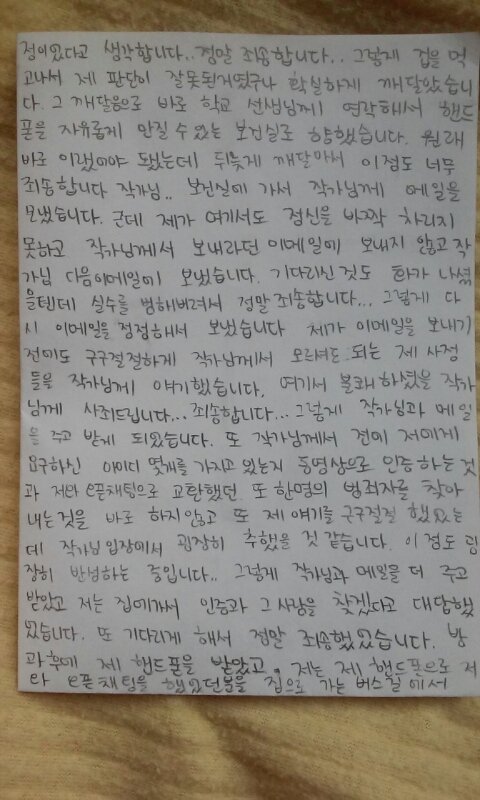 정이었다고 생각합니다.. 정말 죄송합니다.. 그렇게 겁을 먹
고나서 제 판단이 잘못된거였구나 확실하게 깨달았습니
다. 그 깨달음으로 바로 학교 선생님께 연락해서 핸드
폰을 자유롭게 만질 수 있는 보건실로 향했습니다. 원래
바로 이랬어야 됐는데 뒤늦게 깨달아서 이점도 너무
죄송합니다 작가님.. 보건실에 가서 작가님께 메일을
보냈습니다. 근데 제가 여기서도 정신을 바짝 차리지
못하고 작가님께서 보내라던 이메일에 보내지 않고 작
가님 다음이메일에 보냈습니다. 기다리신것도 화가 나셨
을텐데 실수를 범해버려서 정말 죄송합니다... 그렇게 다
시 이메일을 정정해서 보냈습니다 제가 이메일을 보내기
전에도 구구절절하게 작가님께서 모르셔도 되는 제 사정
들을 작가님께 얘기했습니다. 여기서 불쾌하셨을 작가
님께 사죄드립니다... 죄송합니다... 그렇게 작가님과 메일
을 주고 받게 되었습니다. 또 작가님께서 전에 저에게
요구하신 아이디 몇개를 가지고 있는지 동영상으로 인증하는것
과 저와 오픈채팅으로 교환했던 또 한명의 범죄자를 찾아
내는것을 바로 하지않고 또 제 얘기를 구구절절 했었는
데 작가님 입장에서 굉장히 추했을 것 같습니다. 이 점도 굉
장히 반성하는 중입니다.. 그렇게 작가님과 메일을 더 주고
받았고 저는 집에가서 인증과 그 사람을 찾겠다고 대답했
었습니다. 또 기다리게 해서 정말 죄송했었습니다. 방
과후에 제 핸드폰을 받았고, 저는 제 핸드폰으로 저
와 오픈채팅을 했었던분을 집으로 가는 버스길에서